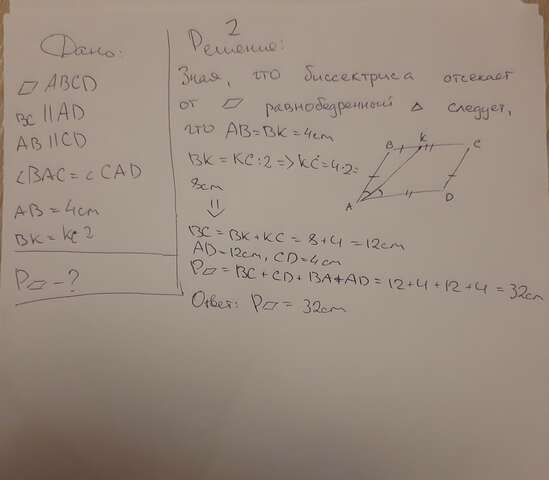 2
Дано:
▱ ABCD
BC || AD
AB || CD
∠BAC = ∠CAD
AB = 4cm
BK = KC 2
P▱ - ?
Решение:
Зная, что биссектриса отсекает
от ▱ равнобедренный △ следует,
что AB = BK = 4cm
BK = KC : 2 => KC = 4·2 =
8cm
⇓
BC = BK + KC = 8 + 4 = 12cm
AD = 12cm, CD = 4cm
P▱ = BC + CD + BA + AD = 12 + 4 + 12 + 4 = 32cm
Ответ: P▱ = 32cm
B K C
A D